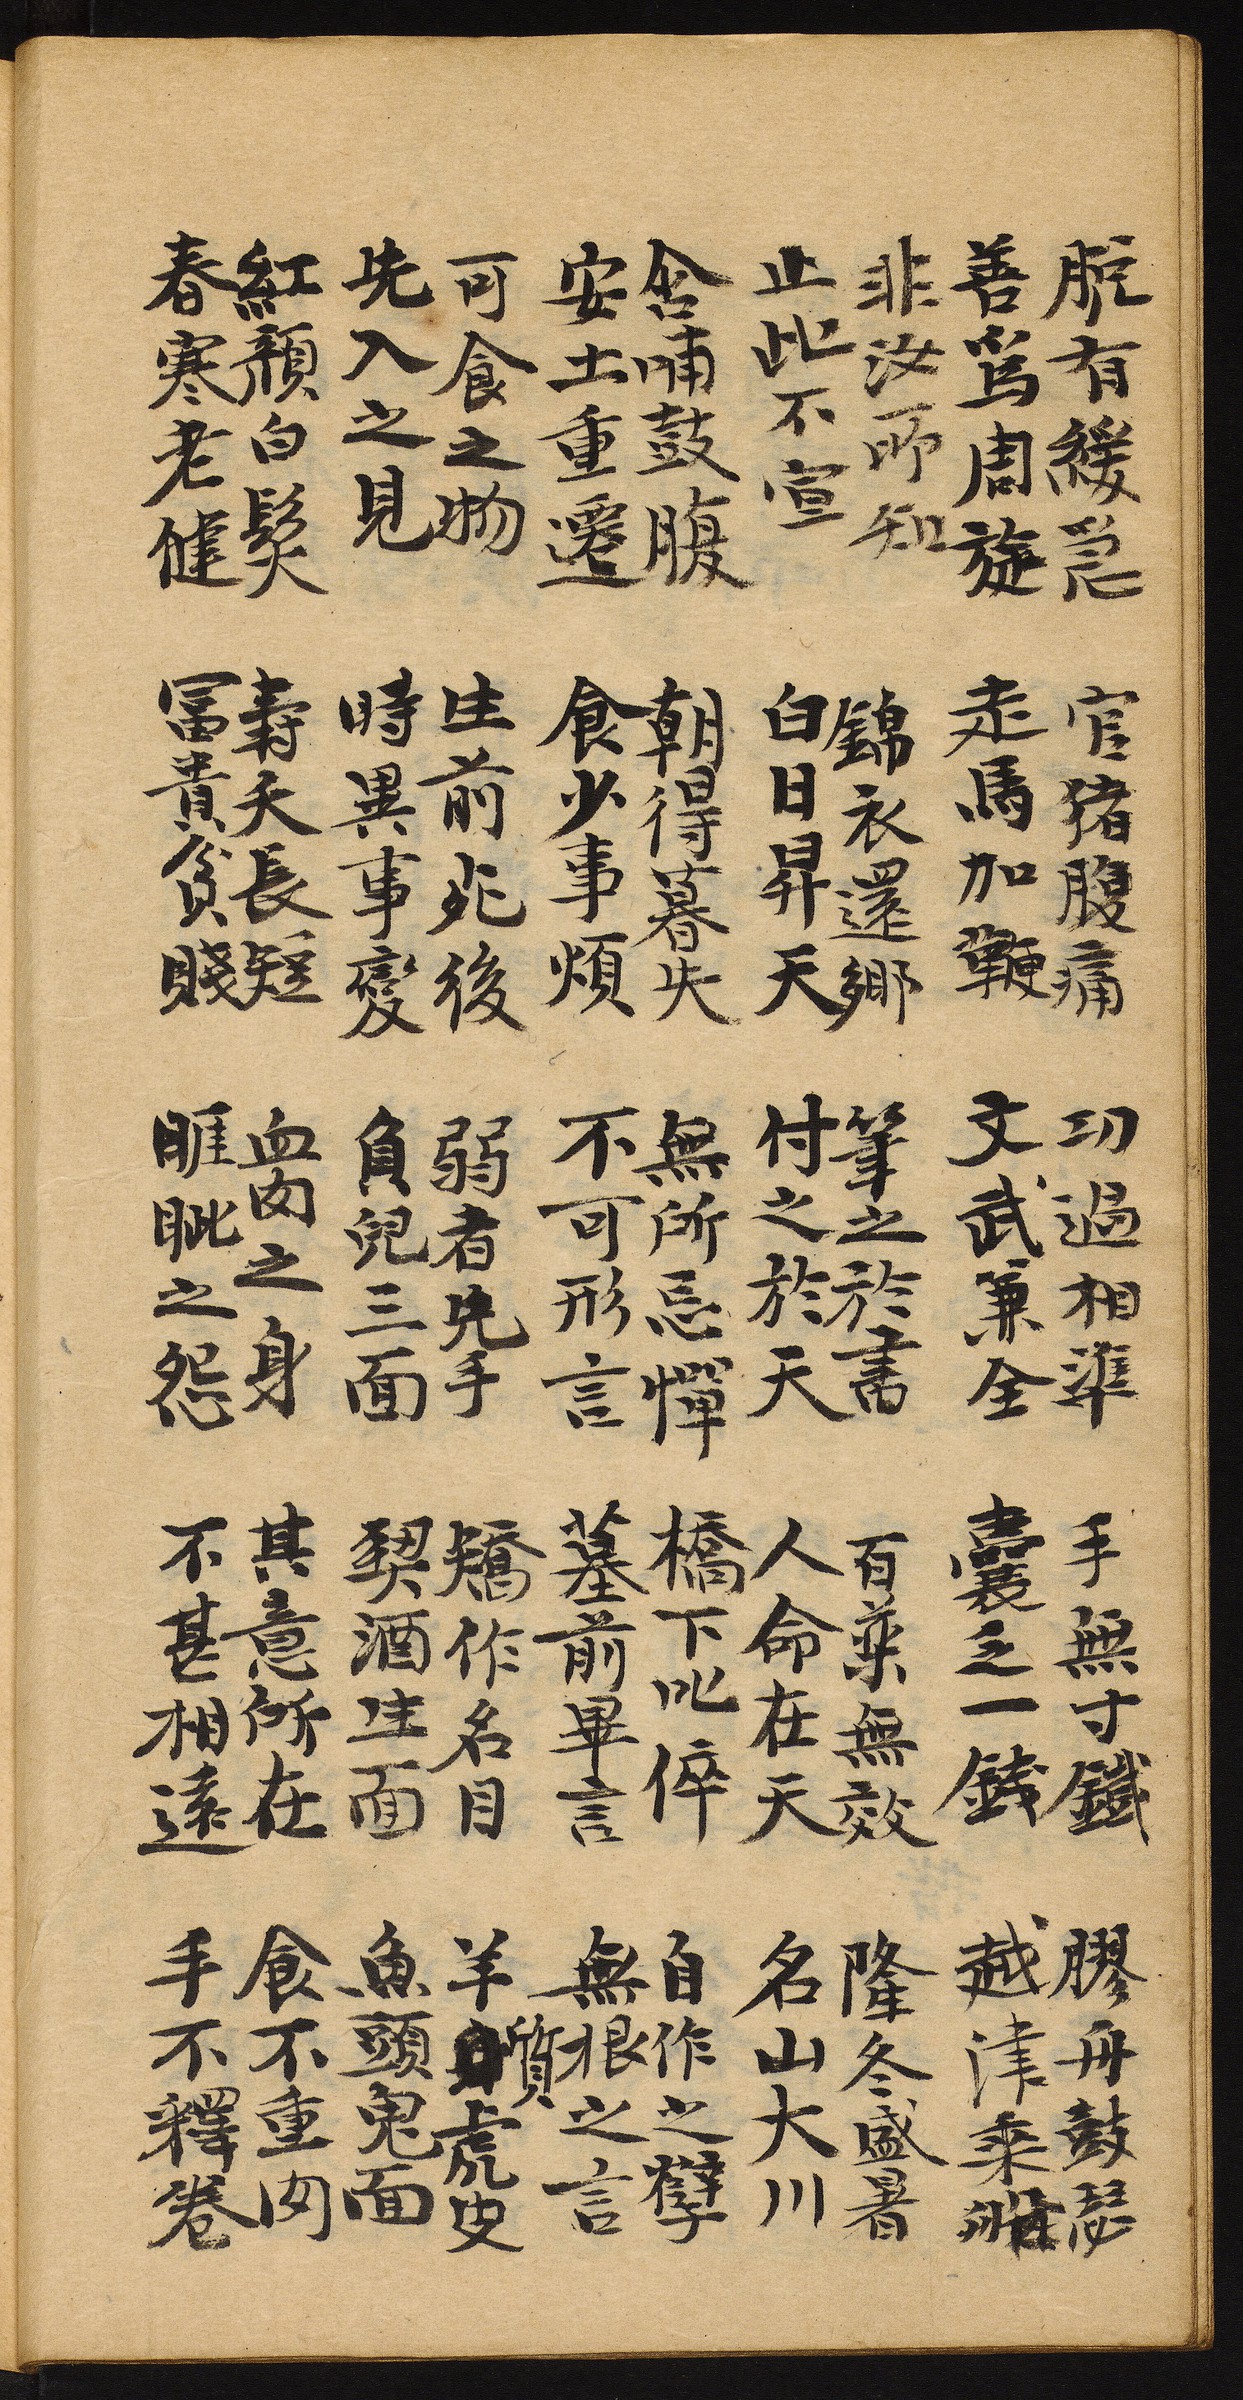 脫有緩急 官猪腹痛 功過相準 手無寸鐵 膠舟鼓瑟
善爲周旋 走馬加鞭 文武兼全 囊乏一錢 越津乘船
非汝所知 錦衣還鄉 筆之於書 百藥無效 隆冬盛暑
止此不宣 白日昇天 付之於天 人命在天 名山大川
含哺鼓腹 朝得暮失 無所忌憚 橋下叱倅 自作之孽
安土重遷 食少事煩 不可形言 墓前畢言 無根之言
可食之物 生前死後 弱者先手 矯作名目 羊質虎皮
先入之見 時異事變 負兒三面 契酒生面 魚頭鬼面
紅顏白髮 壽夭長短 血肉之身 其意所在 食不重肉
春寒老健 冨貴貧賤 睚眦之怨 不甚相遠 手不釋卷